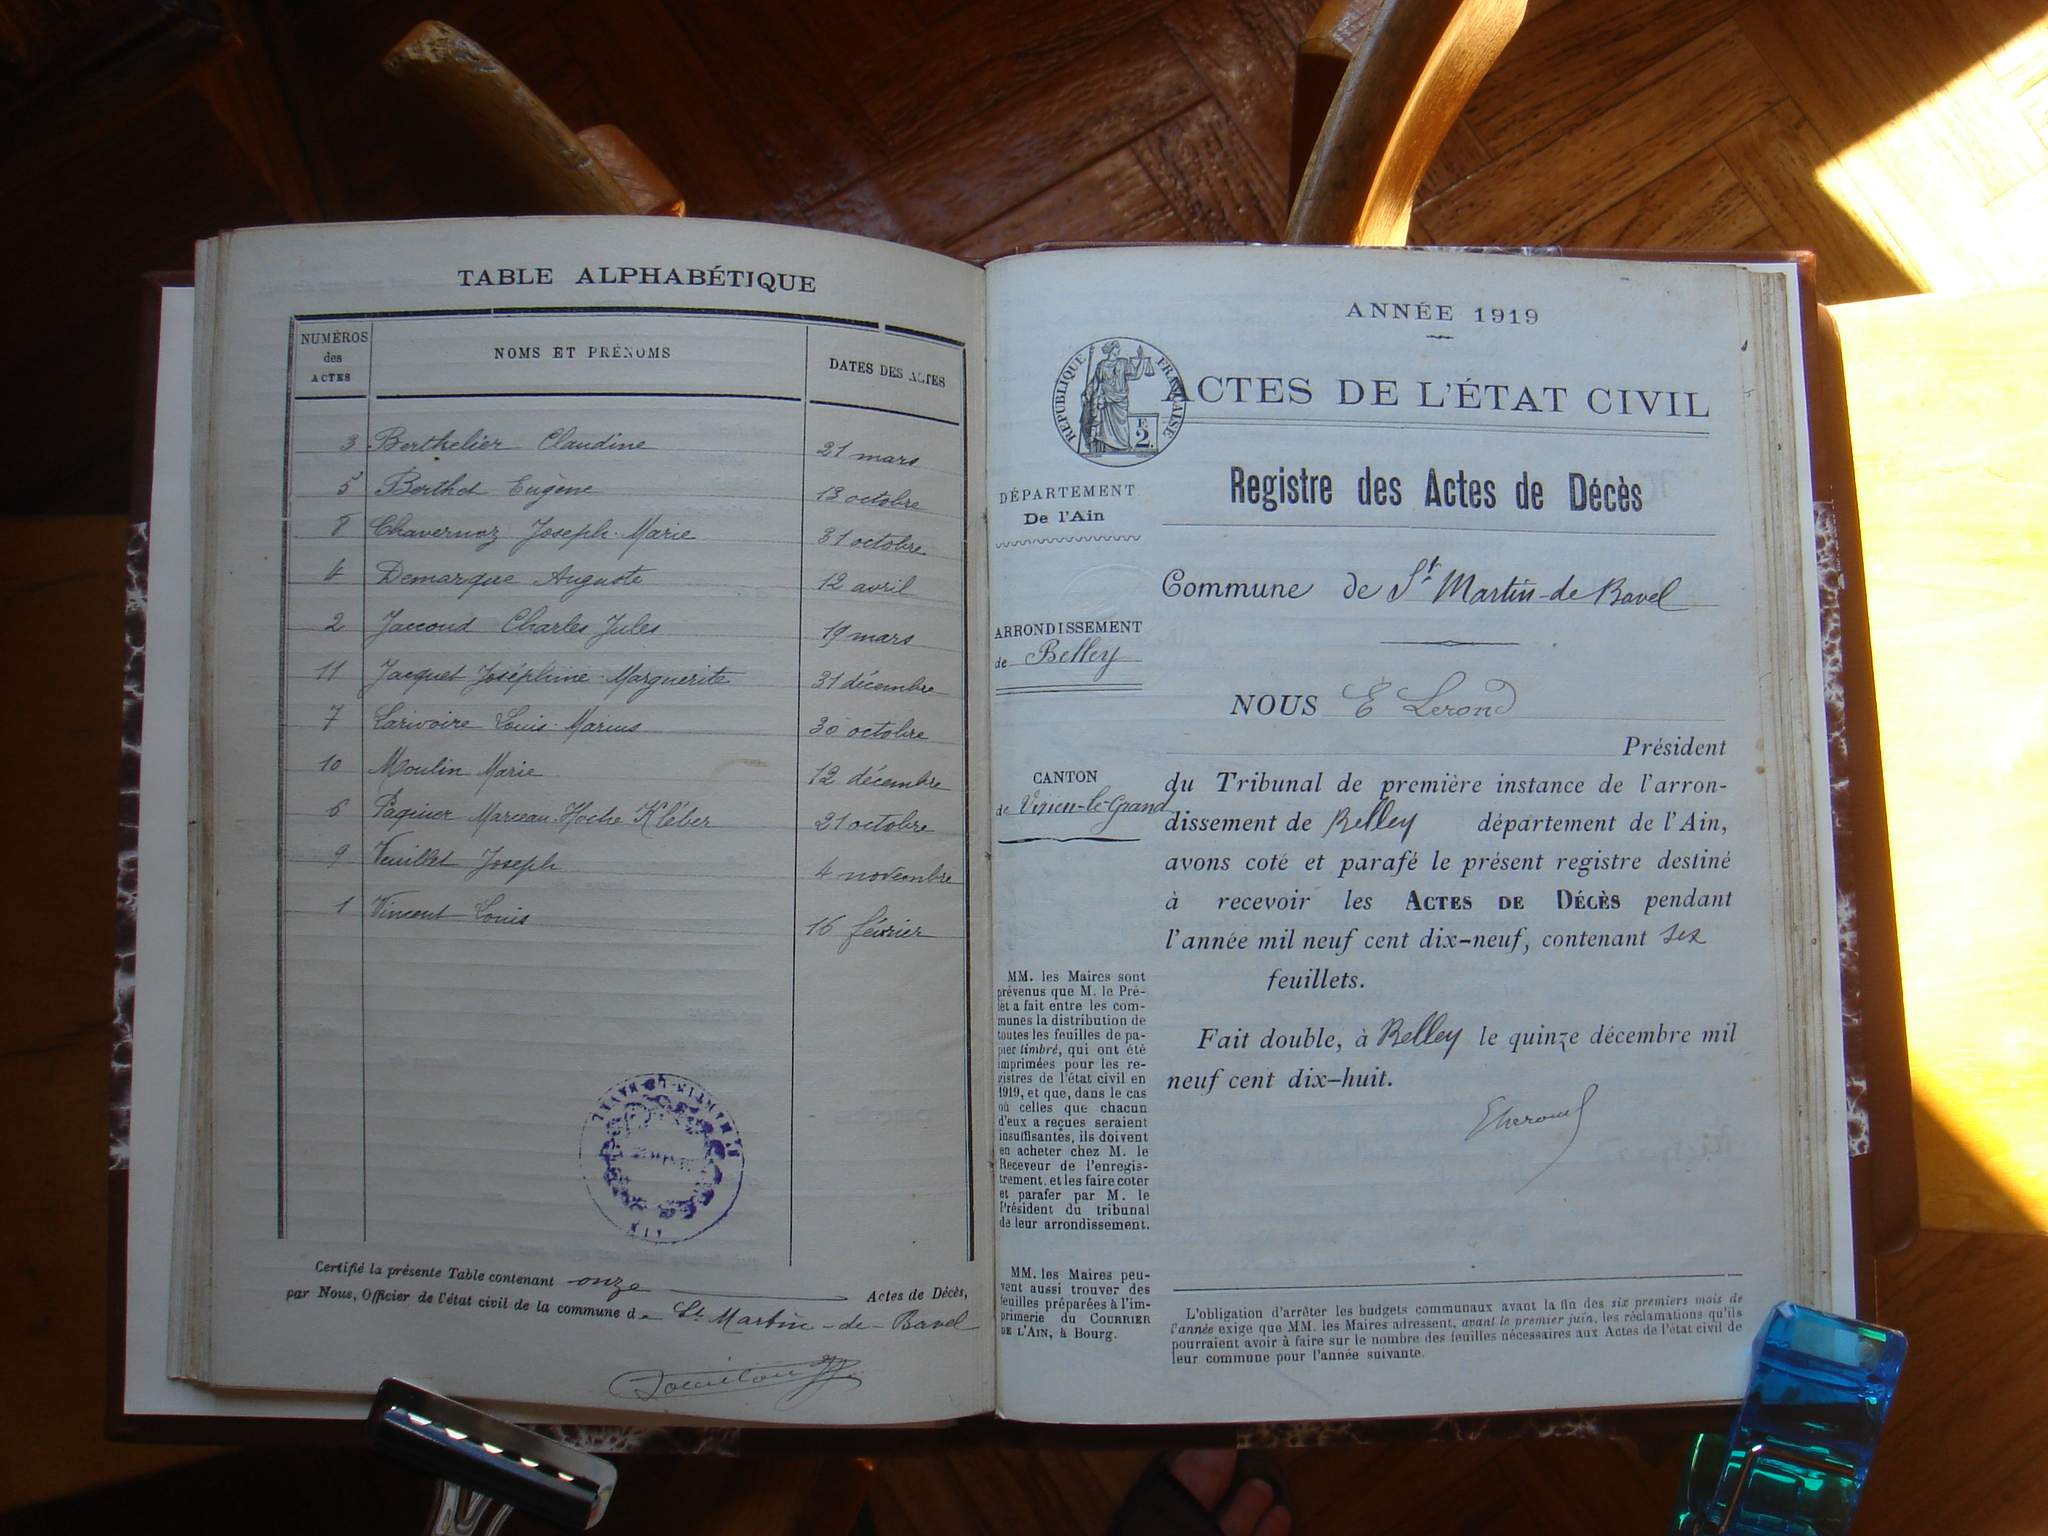 TABLE ALPHABÉTIQUE
NUMÉROS des ACTES
NOMS ET PRÉNOMS
DATES DES ACTES
3 Berthelier Claudine 21 mars
5 Berthet Eugène 13 octobre
8 Chavernoz Joseph-Marie 31 octobre
4 Demarque Auguste 12 avril
2 Jaccoud Charles Jules 19 mars
11 Jacquet Joséphine Marguerite 31 décembre
7 Larivoire Louis-Marius 30 octobre
10 Moulin Marie 12 décembre
6 Paquier Marceau-Hoche Kléber 21 octobre
9 Veuillet Joseph 4 novembre
1 Vincent Louis 16 février
AIN
Certifié la présente Table contenant onze Actes de Décès,
par Nous, Officier de l'état civil de la commune de St Martin-de-Bavel
ANNÉE 1919
RÉPUBLIQUE FRANÇAISE
2
ACTES DE L'ÉTAT CIVIL
DÉPARTEMENT
De l'Ain
Registre des Actes de Décès
Commune de St Martin-de Bavel
ARRONDISSEMENT
de Belley
NOUS E Lerond
Président
CANTON
de Virieu-le-Grand
du Tribunal de première instance de l'arron-
dissement de Belley département de l'Ain,
avons coté et parafé le présent registre destiné
à recevoir les ACTES DE DÉCÈS pendant
l'année mil neuf cent dix-neuf, contenant six
feuillets.
Fait double, à Belley le quinze décembre mil
neuf cent dix-huit.
MM. les Maires sont
prévenus que M. le Pré-
fet a fait entre les com-
munes la distribution de
toutes les feuilles de pa-
pier timbré, qui ont été
imprimées pour les re-
gistres de l'état civil en
1919, et que, dans le cas
où celles que chacun
d'eux a reçues seraient
insuffisantes, ils doivent
en acheter chez M. le
Receveur de l'enregis-
trement, et les faire coter
et parafer par M. le
Président du tribunal
de leur arrondissement.
MM. les Maires peu-
vent aussi trouver des
feuilles préparées à l'im-
primerie du COURRIER
DE L'AIN, à Bourg.
L'obligation d'arrêter les budgets communaux avant la fin des six premiers mois de
l'année exige que MM. les Maires adressent, avant le premier juin, les réclamations qu'ils
pourraient avoir à faire sur le nombre des feuilles nécessaires aux Actes de l'état civil de
leur commune pour l'année suivante.